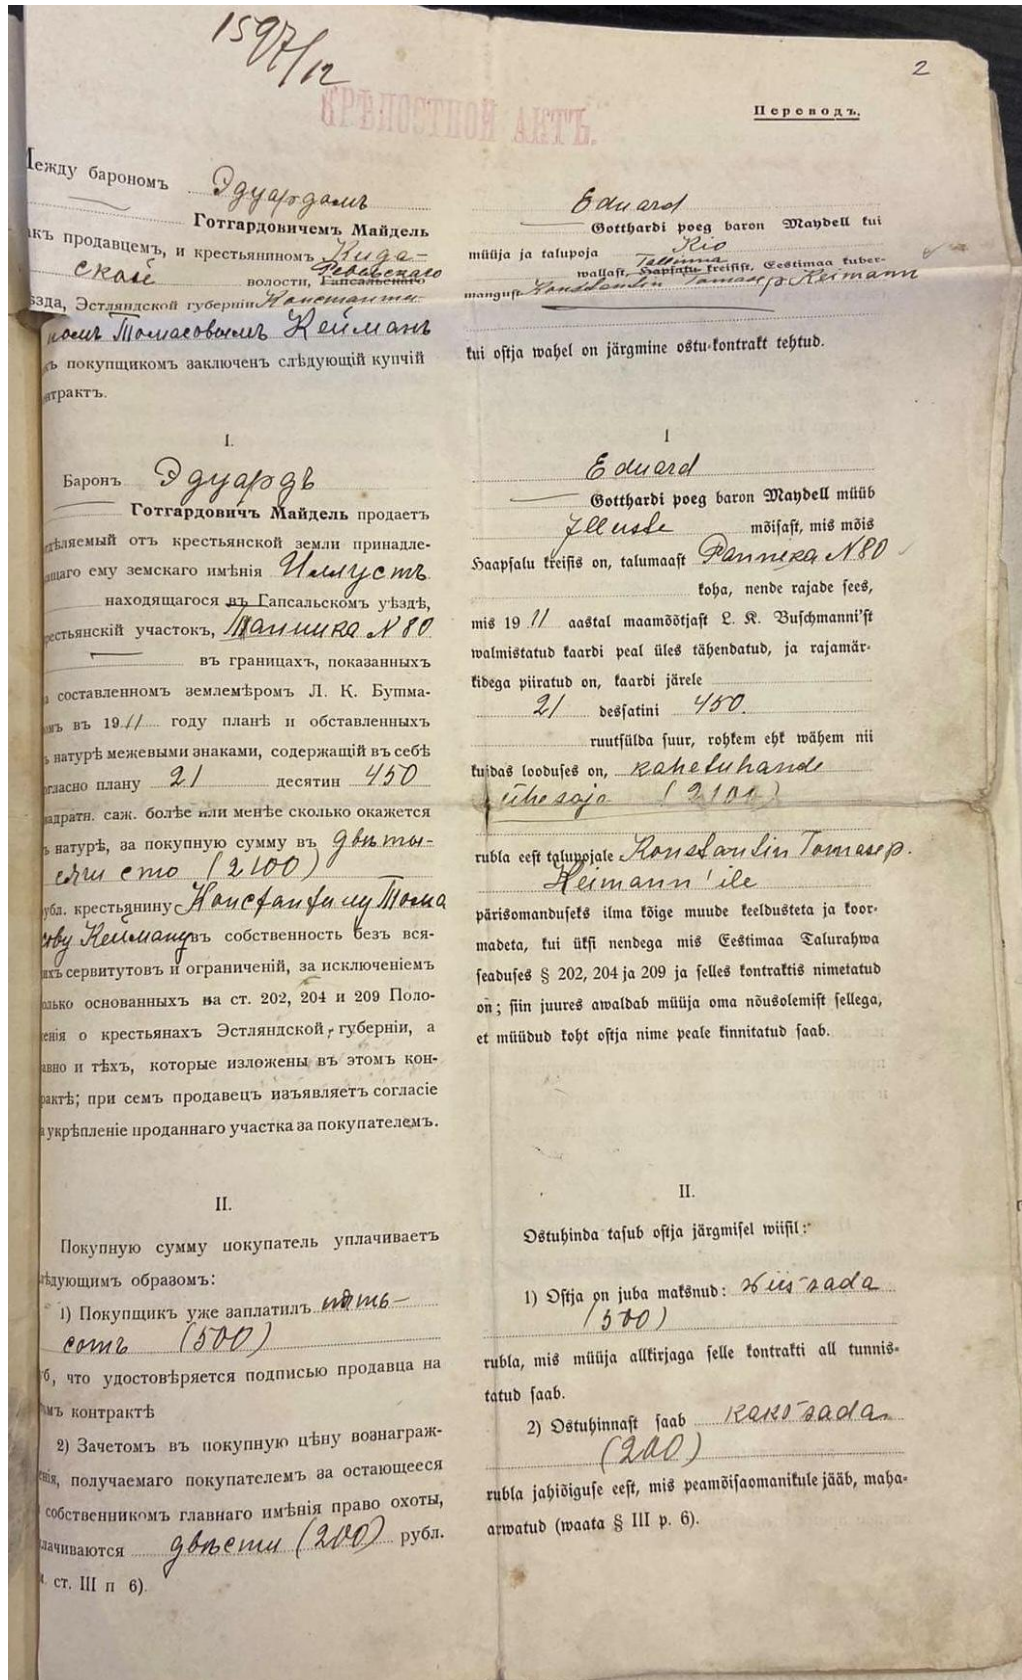 1597/12
2
КРѢПОСТНОЙ АКТЪ.
Переводъ.
Между барономъ Эдуардомъ
Готгардовичемъ Майдель
акъ продавцемъ, и крестьяниномъ Кида-
ской волости, Ревельскаго Гапсальскаго
ѣзда, Эстляндской губерніи Константи
номъ Томасовымъ Кейманъ
къ покупщикомъ заключенъ слѣдующій купчій
нтрактъ.
I.
Баронъ Эдуардъ
Готгардовичъ Майдель продаетъ
дѣляемый отъ крестьянской земли принадле-
ащаго ему земскаго имѣнія Иллустъ
находящагося въ Гапсальскомъ уѣздѣ,
рестьянскій участокъ, Танника N 80
въ границахъ, показанныхъ
а составленномъ землемѣромъ Л. К. Бутма-
омъ въ 1911 году планѣ и обставленныхъ
ъ натурѣ межевыми знаками, содержащій въ себѣ
огласно плану 21 десятин 450
вадратн. саж. болѣе или менѣе сколько окажется
ъ натурѣ, за покупную сумму въ двѣ ты-
сячи сто (2100)
убл. крестьянину Константину Тома
сову Кейману въ собственность безъ вся-
ихъ сервитутовъ и ограниченій, за исключеніемъ
олько основанныхъ на ст. 202, 204 и 209 Поло-
енія о крестьянахъ Эстляндской губерніи, а
авно и тѣхъ, которые изложены въ этомъ кон-
рактѣ; при семъ продавецъ изъявляетъ согласіе
а укрѣпленіе проданнаго участка за покупателемъ.
II.
Покупную сумму покупатель уплачиваетъ
лѣдующимъ образомъ:
1) Покупщикъ уже заплатилъ пять-
сотъ (500)
уб, что удостовѣряется подписью продавца на
омъ контрактѣ
2) Зачетомъ въ покупную цѣну вознаграж-
енія, получаемаго покупателемъ за остающееся
собственникомъ главнаго имѣнія право охоты,
лачиваются двѣсти (200) рубл.
ст. III п 6).
Eduard
Gotthardi poeg baron Maydell kui
müüja ja talupoja Kio
wallast, Tallinna Hapsalu kreisist, Eestimaa kuber-
mangust Konstantin Tomase p. Keimann
kui ostja wahel on järgmine ostu-kontrakt tehtud.
I
Eduard
Gotthardi poeg baron Maydell müüb
Jlluste mõisast, mis mõis
Haapsalu kreisis on, talumaast Pannika N 80
koha, nende rajade sees,
mis 1911 aastal maamõõtjast L. K. Buschmanni'st
walmistatud kaardi peal üles tähendatud, ja rajamär-
kidega piiratud on, kaardi järele
21 dessatini 450.
ruutsülda suur, rohkem ehk wähem nii
kuidas looduses on, kahetuhande
ühesaja (2100)
rubla eest talupojale Konstantin Tomase p.
Keimann'ile
pärisomanduseks ilma kõige muude keeldusteta ja koor-
madeta, kui üksi nendega mis Eestimaa Talurahwa
seaduses § 202, 204 ja 209 ja selles kontraktis nimetatud
on; siin juures awaldab müüja oma nõusolemist sellega,
et müüdud koht ostja nime peale kinnitatud saab.
II.
Ostuhinda tasub ostja järgmisel wiisil:
1) Ostja on juba maksnud: wiissada
(500)
rubla, mis müüja allkirjaga selle kontrakti all tunnis-
tatud saab.
2) Ostuhinnast saab kakssada
(200)
rubla jahiõiguse eest, mis peamõisaomanikule jääb, maha-
arwatud (waata § III p. 6).